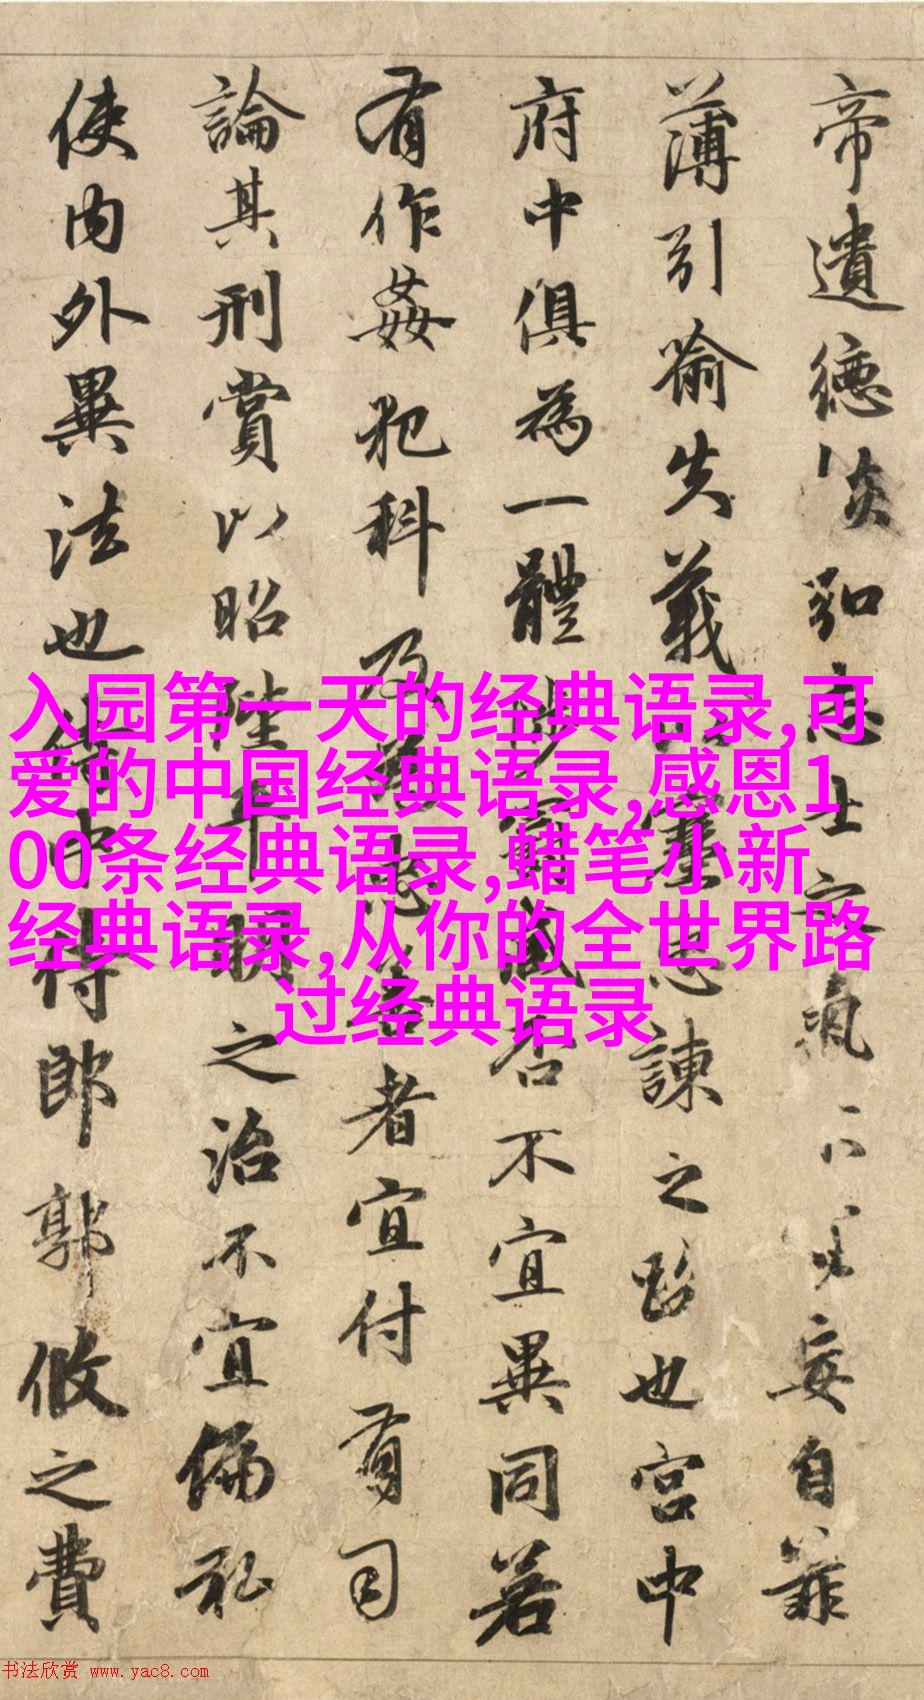 帝遺德恢弘志士之氣不妄自菲
薄引喻失義以塞忠諫之路也宮中
府中俱為一體陟罰臧否不宜異同若
有作姦犯科及為忠善者宜付有司
論其刑賞以昭陛平明之治不宜偏私
使內外異法也侍中侍郎郭攸之費
入园第一天的经典语录,可
爱的中国经典语录,感恩1
00条经典语录,蜡笔小新
经典语录,从你的全世界路
过经典语录
书法欣赏 www.yac8.com